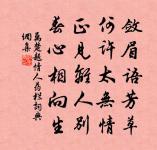 斂眉語芳草
何許太無情
正見離人別
春心相向生
萬楚題情人药栏詞典
網集